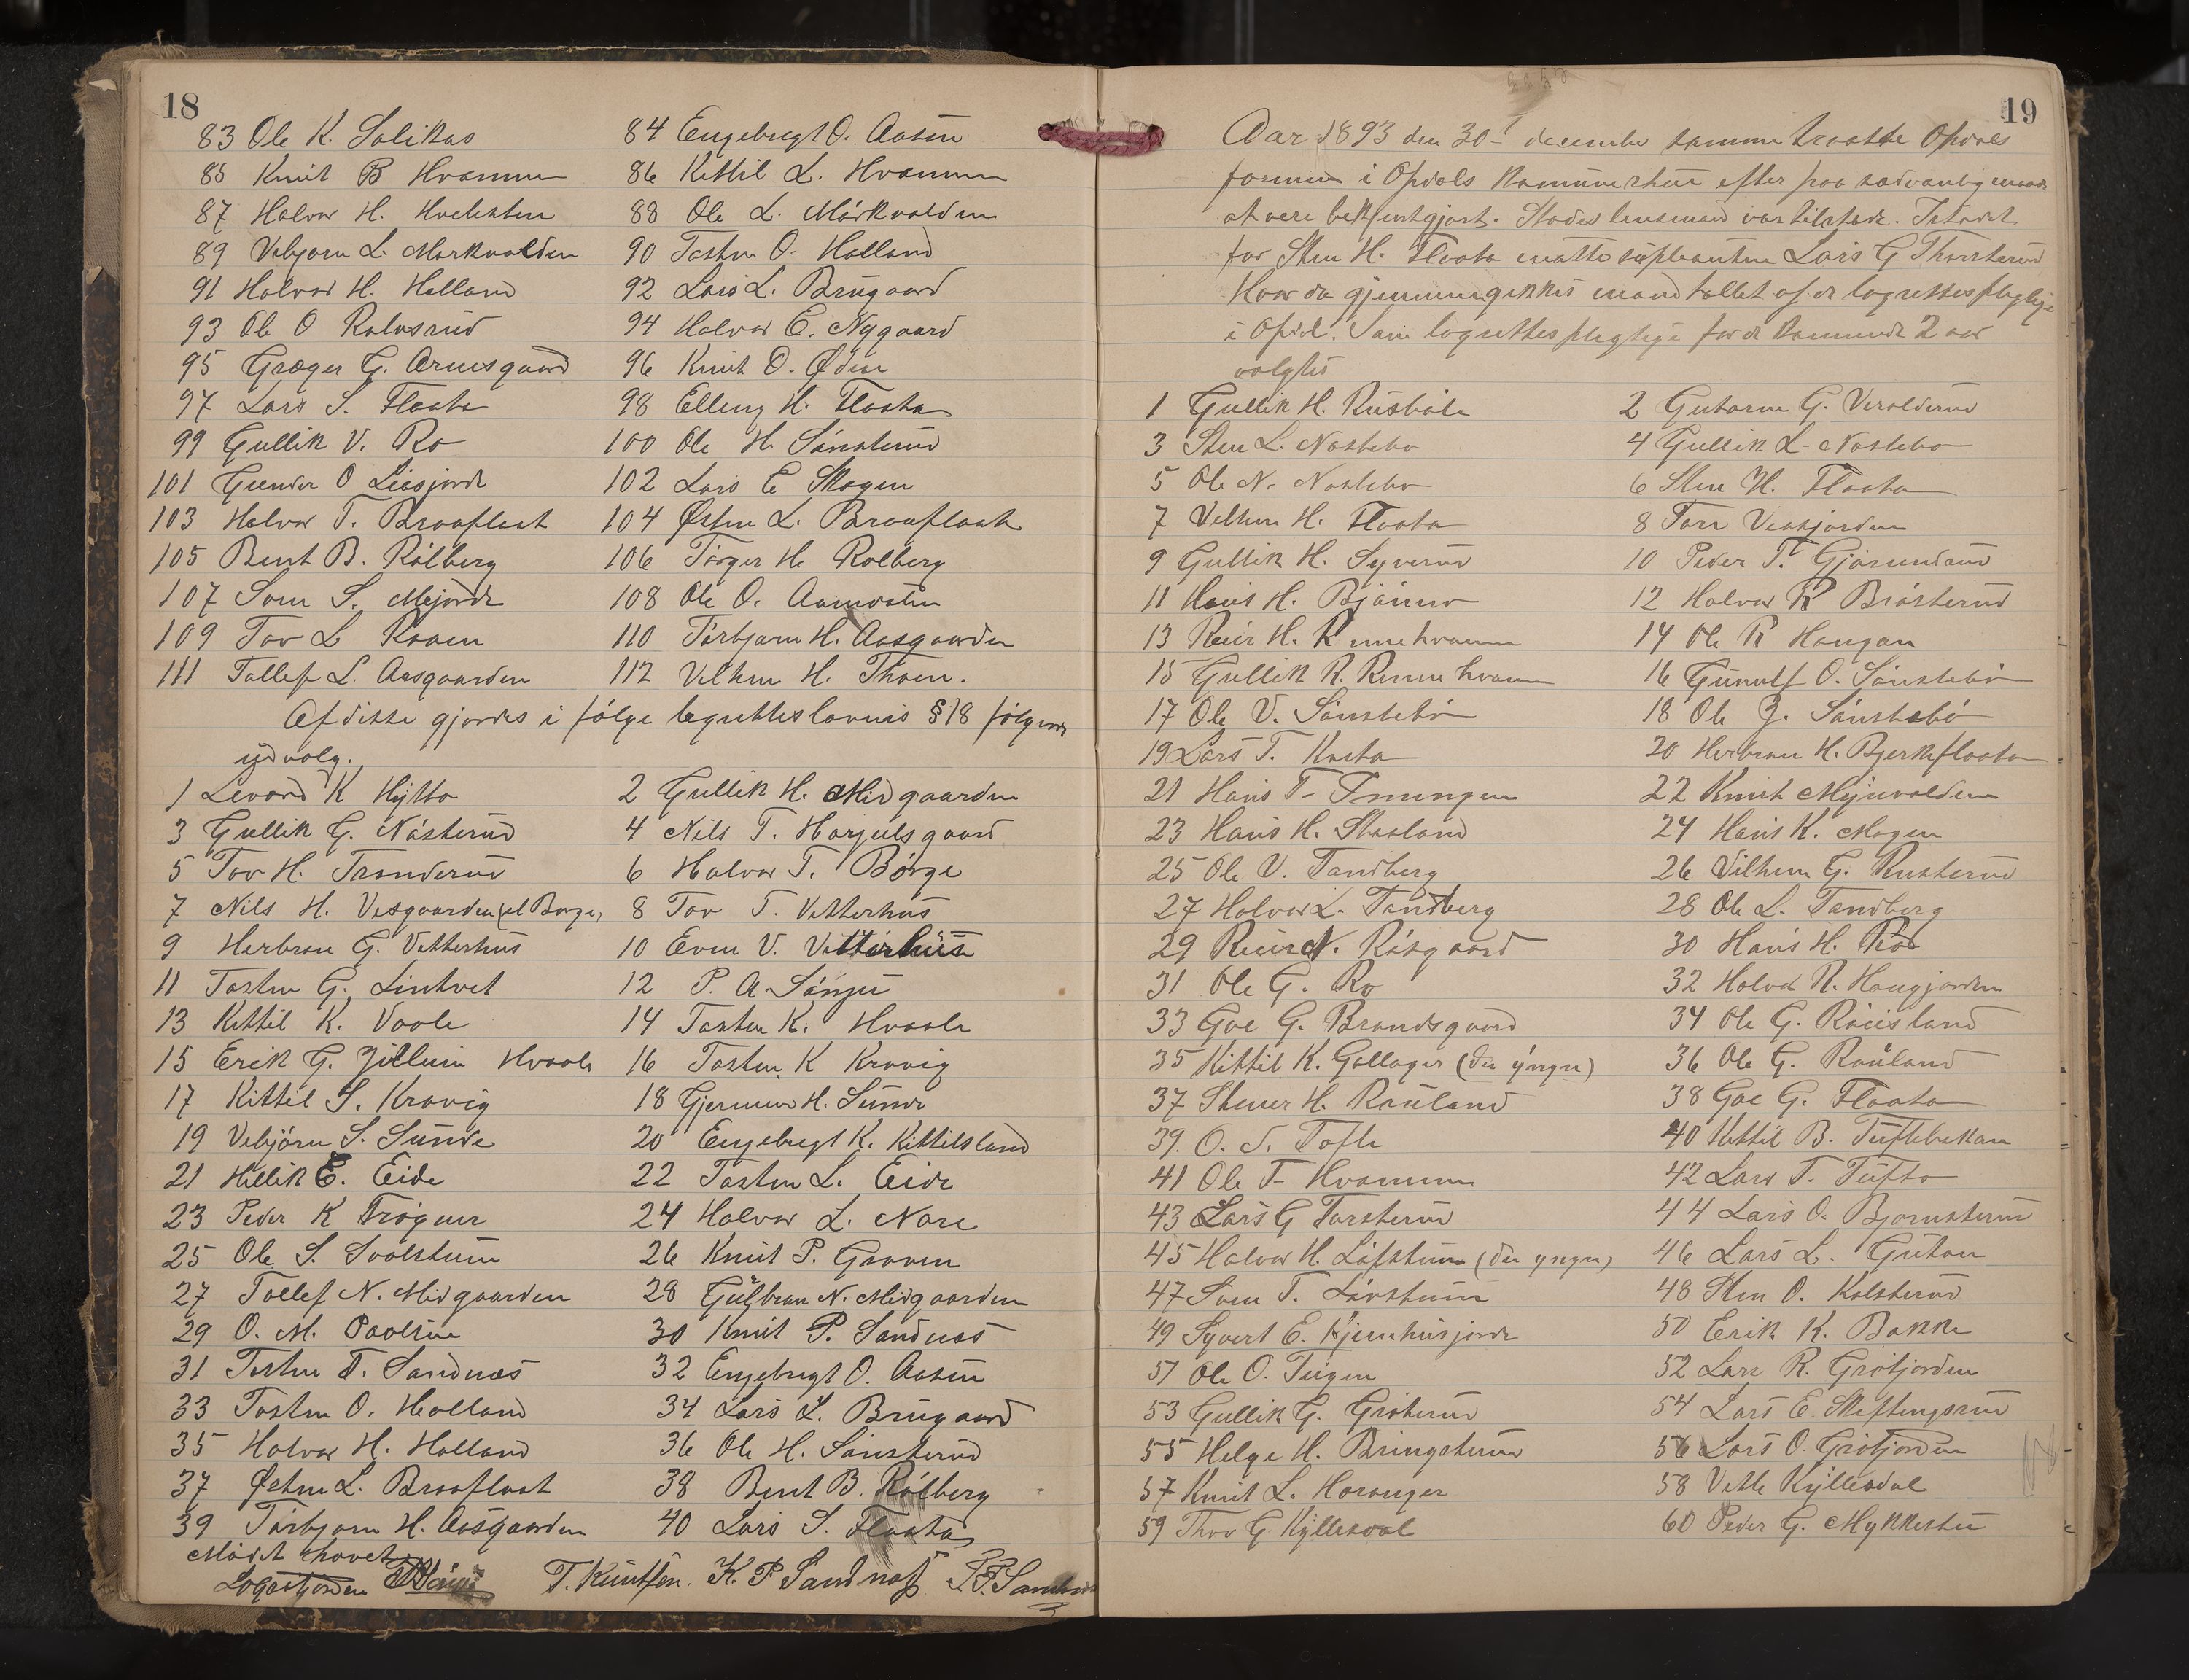 18
83 Ole K. Solikas 84 Engebregt O. Aasen
85 Knut B Hvammen 86 Kittil L. Hvammen
87 Halvor H. 88 Ole L. Mörkvolden
89 Vebjørn L. Morkvolden 90 Tosten O. Holland
91 Halvor H. Holland 92 Lars L. Brugaard
93 Ole O Rolvsrud 94 Halvor E. Nygaard
95 Græger G. Arnesgaard 96 Knut O. Ødin
97 Lars S. Flaata 98 Elling H. Flaata
99 Gullik V. Ro 100 Ole H. Sönsterud
101 Gunder O Liesjordt 102 Lars E Skogen
103 Halvor T. Braaflaat 104 Østen L. Braaflaat
105 Bent B. Rölberg 106 Törger H. Rolberg
107 Sven S. Mejorde 108 Ole O.
109 Tov L Kaasen 110 Törbjorn H. Aasgaarden
111 Tollef L. Aasgaarden 112 Velkun H. Thoen.
Af disse gjordes i følge lagrettelovens §18 følgende
udvalg.
1 Levord K Hytta 2 Gullik H. Midgaarden
3 Gullik G. Nösterud 4 Nils T. Horjulsgaard
5 Tov H. Tranderud 6 Halvor T. Börge
7 Nils H. Vesgaarden (el Borge) 8 Tov T. Vetterhus
9 Herbran G. Vetterhus 10 Even V. Vetterhus
11 Tosten G. Lintvet 12 P. A. Söngei
13 Kittil K. Vaale 14 Tosten K. Hvaale
15 Erik G. Jellum Hvaale 16 Tosten K Kravig
17 Kittil S. Kravig 18 Gjermund H. Sunde
19 Vebjörn S. Sunde 20 Engebregt K. Kittilsland
21 Hellik E. Eide 22 Tosten L. Eide
23 Peder K Frøgner 24 Halvor L. Nore
25 Ole S. Svolstuin 26 Knut P. Graven
27 Tollef N. Midgaarden 28 Gulbran N. Midgaarden
29 O. M. Povlsen 30 Knut P. Sandnes
31 Tosten T. Sandnæs 32 Engebregt O. Aasen
33 Tosten O. Holland 34 Lars L. Brugaard
35 Halvor H. Holland 36 Ole H. Sönsterud
37 Østen L. Braaflaat 38 Bent B. Rölberg
39 Törbjorn H. Aasgaarden 40 Lars S. Flaata
Mödet hævet
T. Knutsen. K. P Sandnæs
19
Aar 1893 den 30- december sammentraatte Opdals
formen i Opdals Kommunehus efter paa sædvanlig maade
at være bekjentgjort. Stedes lensmand var tilstede. Istedet
for Sten H. Flaata møtte supleanten Lars G Thorsterud
Hvor da gjennemgikkes mandtallet af de lagrettespligtige
i Opdal. Som lagrettespligtige for de kommende 2 aar
valgtes
1 Gullik H. Rusböle 2 Gutorm G. Veralderud
3 Sten L. Nøstebo 4 Gullik L. Nøstebo
5 Ole N. Nøstebo 6 Sten H. Flaata
7 Velkun H. Flaata 8 Tarr Veasjorden
9 Gullik H. Syverud 10 Peder T. Gjösundrud
11 Hans H. Bjönnro 12 Halvor R Brösterud
13 Reier H. Rennehvamm 14 Ole R Haugan
15 Gullik R. Rennehvam 16 Gunulf O. Sönstebö
17 Ole V. Sönstebö 18 Ole J. Sönstebö
19 Lars T. Kasta 20 Herbran H. Bjerkeflaata
21 Hans T. Imingen 22 Knut Myrvolden
23 Hans H. Skoland 24 Hans K. Mogen
25 Ole V. Tandberg 26 Vilhem G. Rusterud
27 Halvor L. Tandberg 28 Ole L. Tandberg
29 Reier N. Rösgaard 30 Hans H. Ro
31 Ole G. Ro 32 Halvor R. Haugjorden
33 Goe G. Brandsgaard 34 Ole G. Rauland
35 Kittil K. Gallager (den yngre) 36 Ole G. Rauland
37 Stener H. Rauland 38 Goe G. Flaata
39. O. S. Tofte 40 Kittil B. Tuftebakan
41 Ole T. Hvammen 42 Lars T. Tufto
43 Lars G Tørsterud 44 Lars O. Bjornsterud
45 Halvor H. Löfstuen (den yngre) 46 Lars L. Guton
47 Sven T. Lövstuin 48 Sten O. Kolsterud
49 Syvert E. Kjernhusjorde 50 Erik K. Bakke
51 Ole O. Teigen 52 Lars R. Gröfjorden
53 Gullik G. Gröterud 54 Lars E. Skeftingsrud
55 Helge H. Bringsterud 56 Lars O. Gröfjorden
57 Knut L. Horanger 58 Vetle Kyllesdal
59 Thov G. Kyllesdal 60 Peder G. Mykkestu